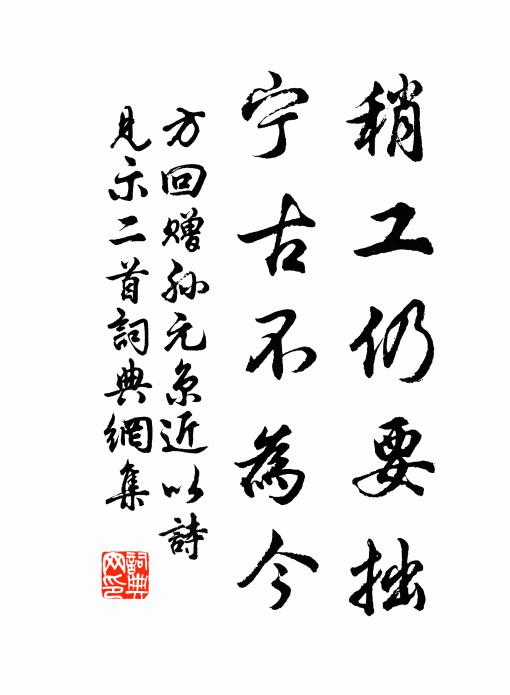 稍工仍要拙
宁古不為今
方回赠孙元京近以詩
見示二首詞典網集
詞典
网印